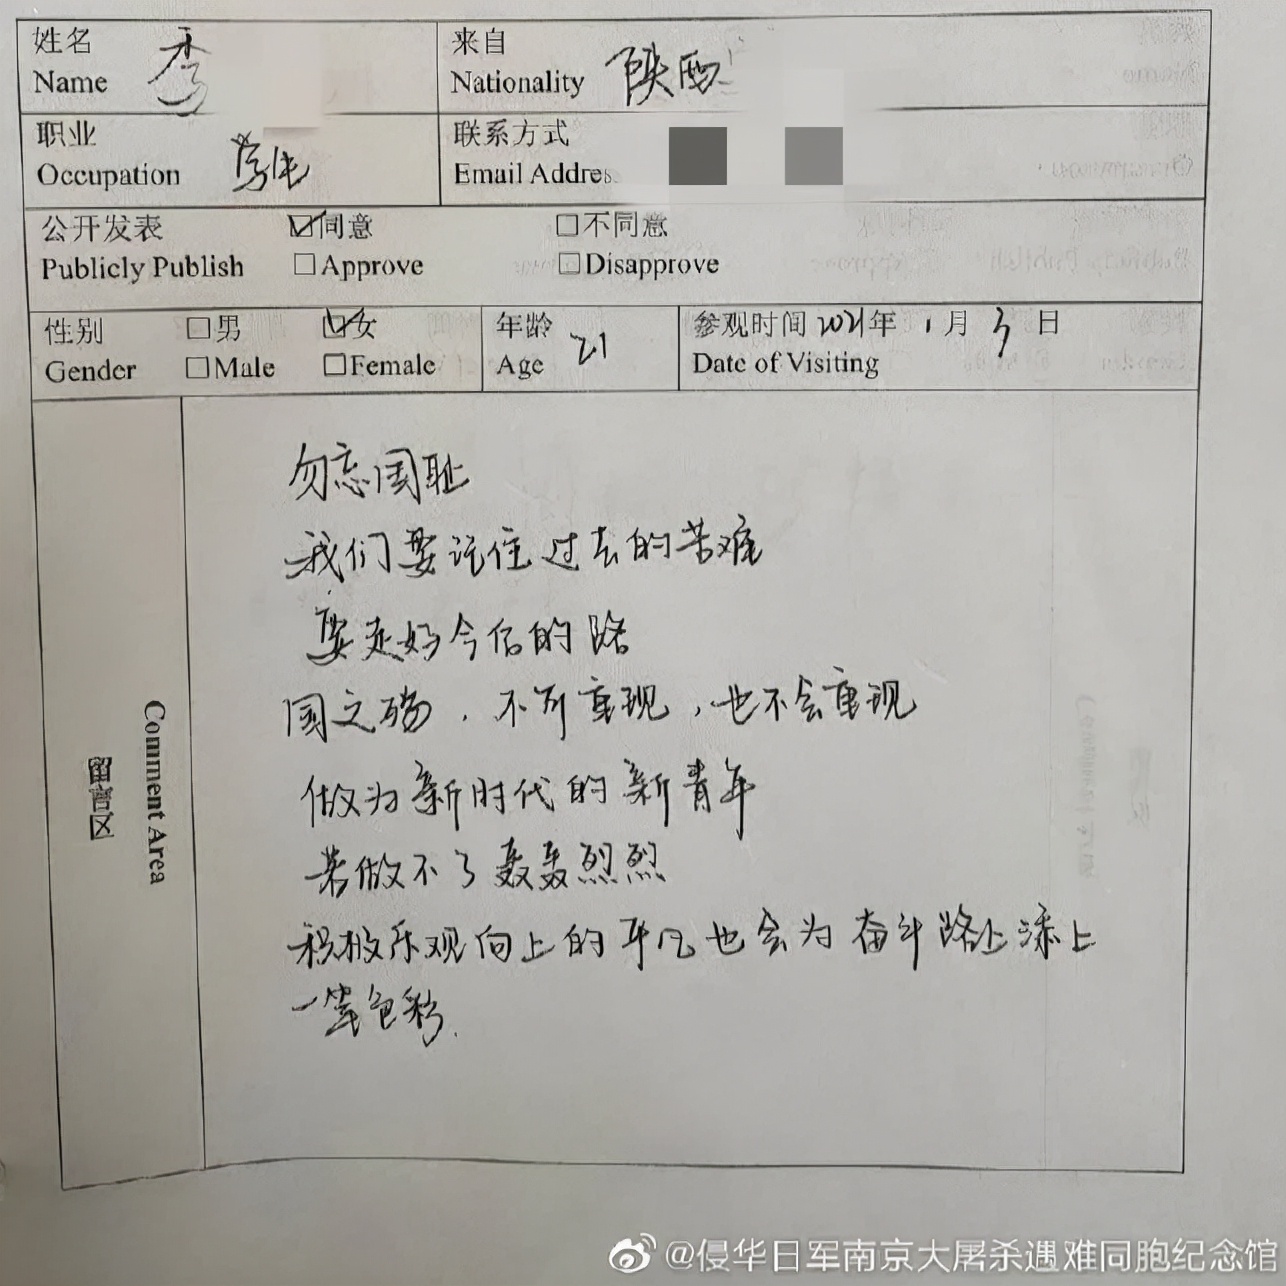 姓名 李 来自 陕西
Name Nationality
职业 学生 联系方式
Occupation Email Addres
公开发表 ☑同意 □不同意
Publicly Publish □Approve □Disapprove
性别 □男 ☑女 年龄 21 参观时间 2021年 1月 3日
Gender □Male □Female Age Date of Visiting
留言区
Comment Area
勿忘国耻
我们要记住过去的苦难
要走好今后的路
国之殇，不可重现，也不会重现
做为新时代的新青年
若做不了轰轰烈烈
积极乐观向上的平凡也会为奋斗路上添上
一笔色彩.
@侵华日军南京大屠杀遇难同胞纪念馆